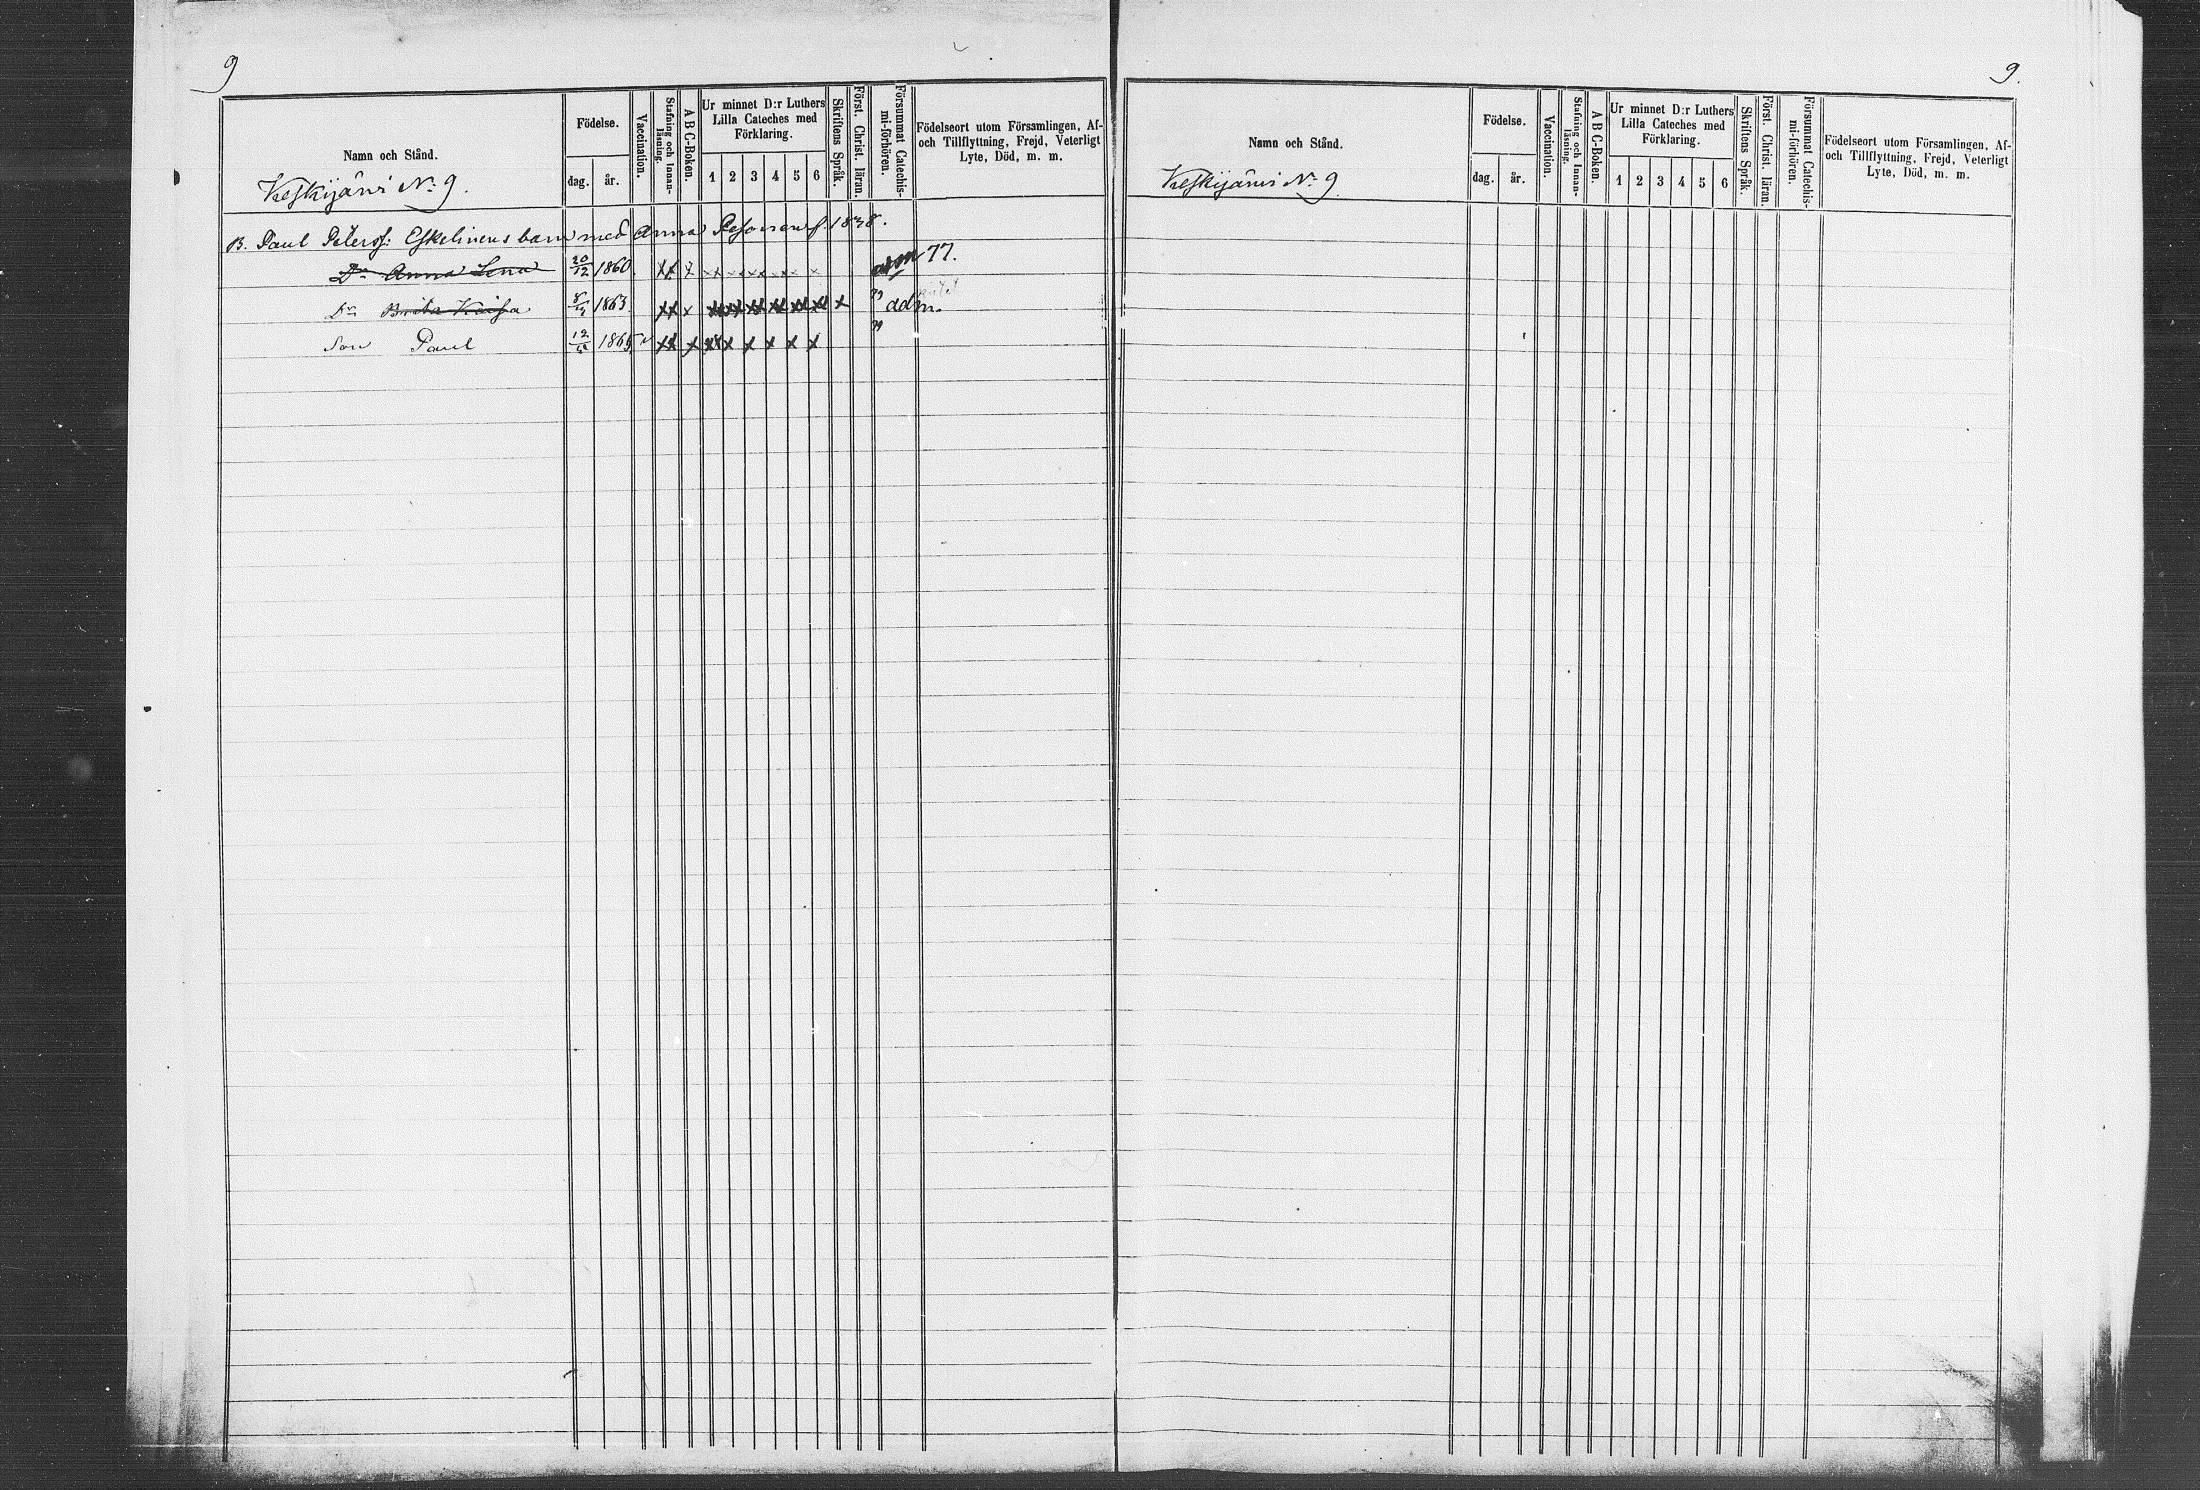 9
Namn och Stånd.
Keskijärvi No. 9.
Födelse.
dag.
år.
Vaccination.
Stafning och Innan-läsning.
A B C-Boken.
Ur minnet D:r Luthers
Lilla Cateches med
Förklaring.
1 2 3 4 5 6
Skriftens Språk.
Först. Christ. läran.
Försummat Catechis-mi-förhören.
Födelseort utom Församlingen, Af-
och Tillflyttning, Frejd, Veterligt
Lyte, Död, m. m.
B. Paul Peterss: Eskelinens barn med Anna Pesonen f. 1838.
Dr Anna Lena 20/12 1860 x x x x x x x x x x x x 77.
Dr Brita Kaisa 1863 x x x x x x x x x x 79 adm.
Son Paul 12 1865 v x x x x x x x x x 79
9.
Namn och Stånd.
Keskijärvi No. 9
Födelse.
dag.
år.
Vaccination.
Stafning och Innan-läsning.
A B C-Boken.
Ur minnet D:r Luthers
Lilla Cateches med
Förklaring.
1 2 3 4 5 6
Skriftens Språk.
Först. Christ. läran.
Försummat Catechis-mi-förhören.
Födelseort utom Församlingen, Af-
och Tillflyttning, Frejd, Veterligt
Lyte, Död, m. m.